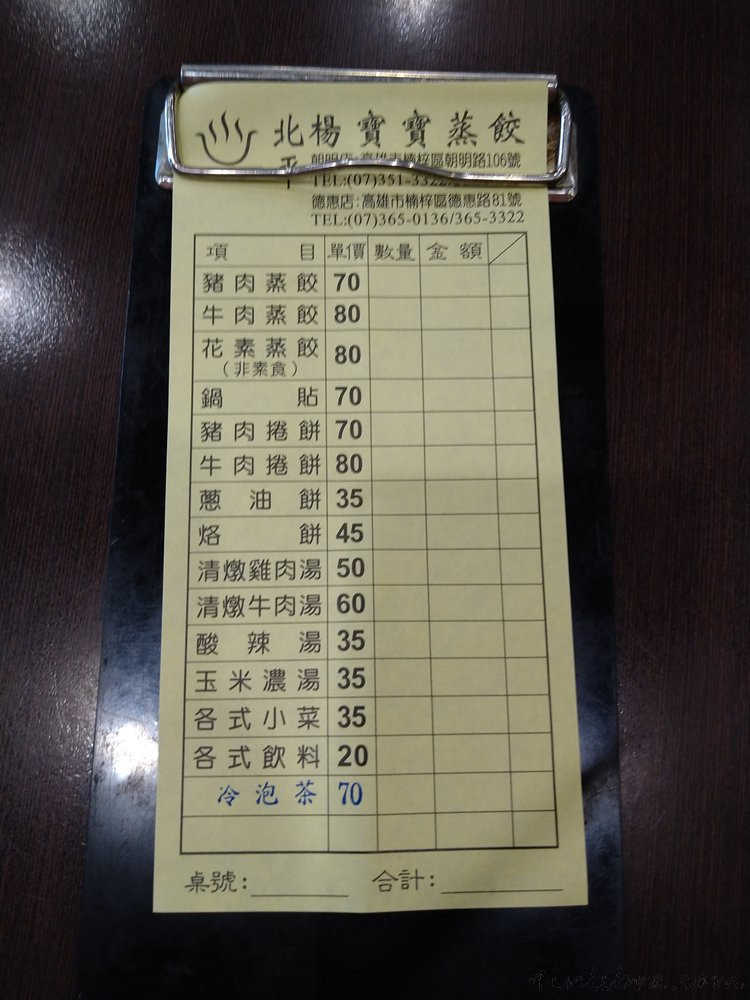 北楊寶寶蒸餃
朝明店:高雄市楠梓區朝明路106號
TEL:(07)351-3322
德惠店:高雄市楠梓區德惠路81號
TEL:(07)365-0136/365-3322
項目 單價 數量 金額
豬肉蒸餃 70
牛肉蒸餃 80
花素蒸餃 80
(非素食)
鍋貼 70
豬肉捲餅 70
牛肉捲餅 80
蔥油餅 35
烙餅 45
清燉雞肉湯 50
清燉牛肉湯 60
酸辣湯 35
玉米濃湯 35
各式小菜 35
各式飲料 20
冷泡茶 70
桌號: 合計: